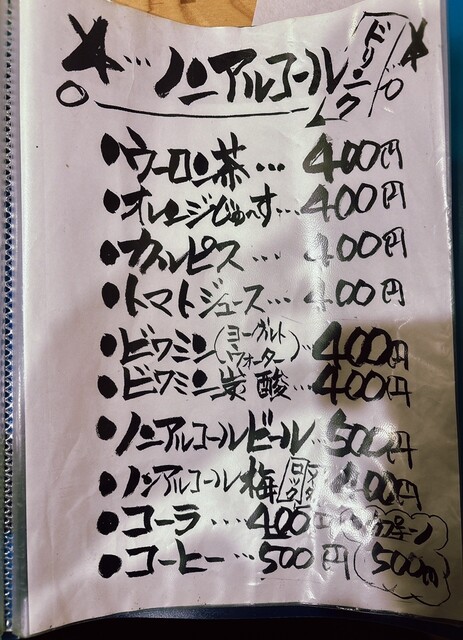 ノンアルコール ドリンク
●ウーロン茶…400円
●オレンジじゅーす…400円
●カルピス…400円
●トマトジュース…400円
●ビワミン(ヨーグルト ウォーター)…400円
●ビワミン炭酸…400円
●ノンアルコールビール…500円
●ノンアルコール梅 ロック 400円
●コーラ…400
●コーヒー…500円 500円